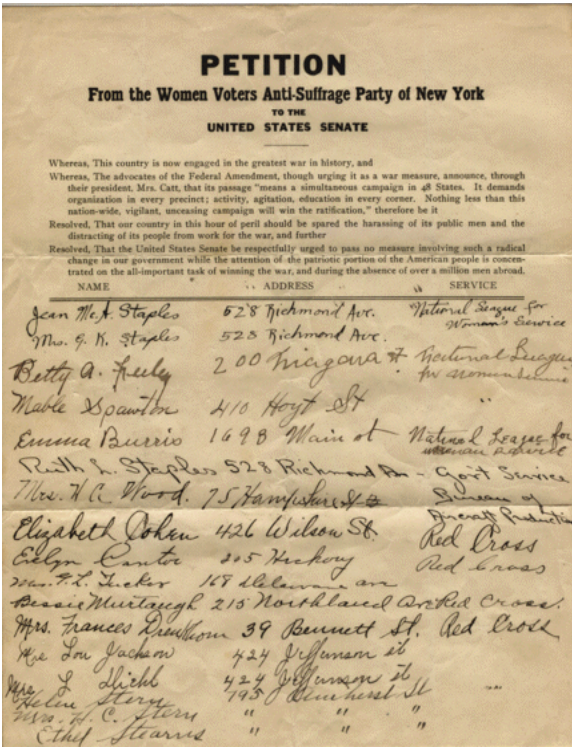 PETITION
From the Women Voters Anti-Suffrage Party of New York
TO THE
UNITED STATES SENATE
Whereas, This country is now engaged in the greatest war in history, and
Whereas, The advocates of the Federal Amendment, though urging it as a war measure, announce, through
their president, Mrs. Catt, that its passage "means a simultaneous campaign in 48 States. It demands
organization in every precinct; activity, agitation, education in every corner. Nothing less than this
nation-wide, vigilant, unceasing campaign will win the ratification," therefore be it
Resolved, That our country in this hour of peril should be spared the harassing of its public men and the
distracting of its people from work for the war, and further
Resolved, That the United States Senate be respectfully urged to pass no measure involving such a radical
change in our government while the attention of the patriotic portion of the American people is concen-
trated on the all-important task of winning the war, and during the absence of over a million men abroad.
NAME ADDRESS SERVICE
Jean Mc.A. Staples 528 Richmond Ave. National League for
Woman's Service
Mrs. G. K. Staples 528 Richmond Ave.
Betty A. 200 Niagara St National League
for
Mable 410 Hoyt St "
Emma Burris 1698 Main st National League for
woman service
Ruth L. Staples 528 Richmond Av - Gov't Service
Mrs. H C. Wood. 75 Hampshire St Bureau of
Aircraft Production
Elizabeth Cohen 426 Wilson St Red Cross
Evelyn Cantor 205 Hickory Red Cross
Mrs. F. L. Tucker 168 Delaware ave
Bessie Murtaugh 215 Northland Ave Red Cross.
Mrs. Frances 39 Bennett St. Red Cross
Mrs Lou Jackson 424 Jefferson st
Mrs L Diehl 424 Jefferson st
Helen Stern 795 St "
Mrs. H. C. Stern " " "
Ethel Stearns " " "